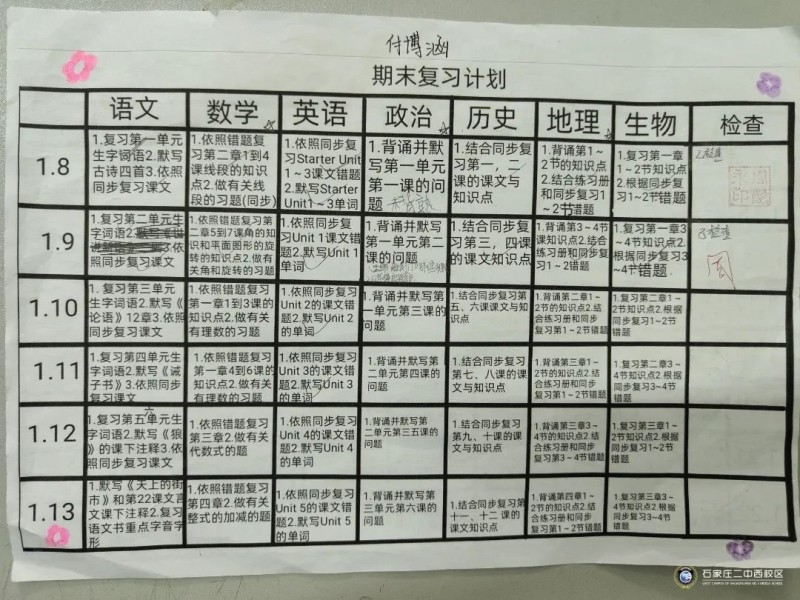 付博涵
期末复习计划
语文 数学 英语 政治 历史 地理 生物 检查
1.8
1.复习第一单元
生字词语2.默写
古诗四首3.依照
同步复习课文
1.依照错题复
习第二章1到4
课线段的知识
点2.做有关线
段的习题(同步)
1.依照同步复
习Starter Unit
1~3课文错题
2.默写Starter
Unit1~3单词
1.背诵并默
写第一单元
第一课的问
题
1.结合同步复
习第一，二
课的课文与
知识点
1.背诵第1~
2节的知识点
2.结合练习册
和同步复习1~
2节错题
1.复习第一章
1~2节知识点
2.根据同步复
习1~2节错题
1.9
1.复习第二单元生
字词语2.
3.依
照同步复习课文
1.依照错题复习第
二章5到7课角的知
识和平面图形的旋
转的知识点2.做有
关角和旋转的习题
1.依照同步复
习Unit 1课文错
题2.默写Unit 1
单词
1.背诵并默写
第一单元第二课
的问题
1.结合同步复
习第三，四课
的课文知识点
1.背诵第3~4节
课知识点2.结合
练习册和同步复
习1~2错题
1.复习第一章3~
4节知识点2.
根据同步复习3~
4节错题
1.10
1.复习第三单元
生字词语2.默写《
论语》12章3.依照
同步复习课文
1.依照错题复习
第一章1到3课的
知识点2.做有关
有理数的习题
1.依照同步复习
Unit 2的课文错
题2.默写Unit 2
的单词
1.背诵并默写第
一单元第三课的
问题
1.结合同步复习第
五、六课课文与知
识点
1.背诵第二章1~
2节的知识点2.结
合练习册和同步
复习第1~2节错题
1.复习第二章1~
2节知识点2.根据
同步复习1~2节
错题
1.11
1.复习第四单元生
字词语2.默写《诫
子书》3.依照同步
复习课文
1.依照错题复习
第一章4到6课的
知识点2.做有关
有理数的习题
1.依照同步复习
Unit 3的课文错
题2.默写Unit 3
的单词
1.背诵并默写第
二单元第四课的
问题
1.结合同步复习
第七、八课的课
文与知识点
1.背诵第三章1~
2节的知识点2.结
合练习册和同步
复习第1~2节错题
1.复习第二章3~
4节知识点2.根据
同步复习3~4节
错题
1.12
六
1.复习第五单元生
字词语2.默写《狼
》的课下注释3.依
照同步复习课文
1.依照错题复习
第三章2.做有关
代数式的题
1.依照同步复习
Unit 4的课文错
题2.默写Unit 4
的单词
1.背诵并默写第
二单元第三五课的
问题
1.结合同步复习
第九、十课的课
文与知识点
1.背诵第三章3~
4节的知识点2.结
合练习册和同步复
习第3~4节错题
1.复习第三章1~
2节知识点2.根据
同步复习1~2节
错题
1.13
1.默写《天上的街
市》和第22课文言
文课下注释2.复习
语文书重点字音字
形
1.依照错题复习
第四章2.做有关
整式的加减的题
1.依照同步复习
Unit 5的课文错
题2.默写Unit 5
的单词
1.背诵并默写第
三单元第六课的
问题
1.结合同步复习第
十一、十二课的
课文知识点
1.背诵第四章1~
2节的知识点2.结
合练习册和同步复
习第1~2节错题
1.复习第三章3~
4节知识点2.根据
同步复习3~4节
错题
石家庄二中西校区